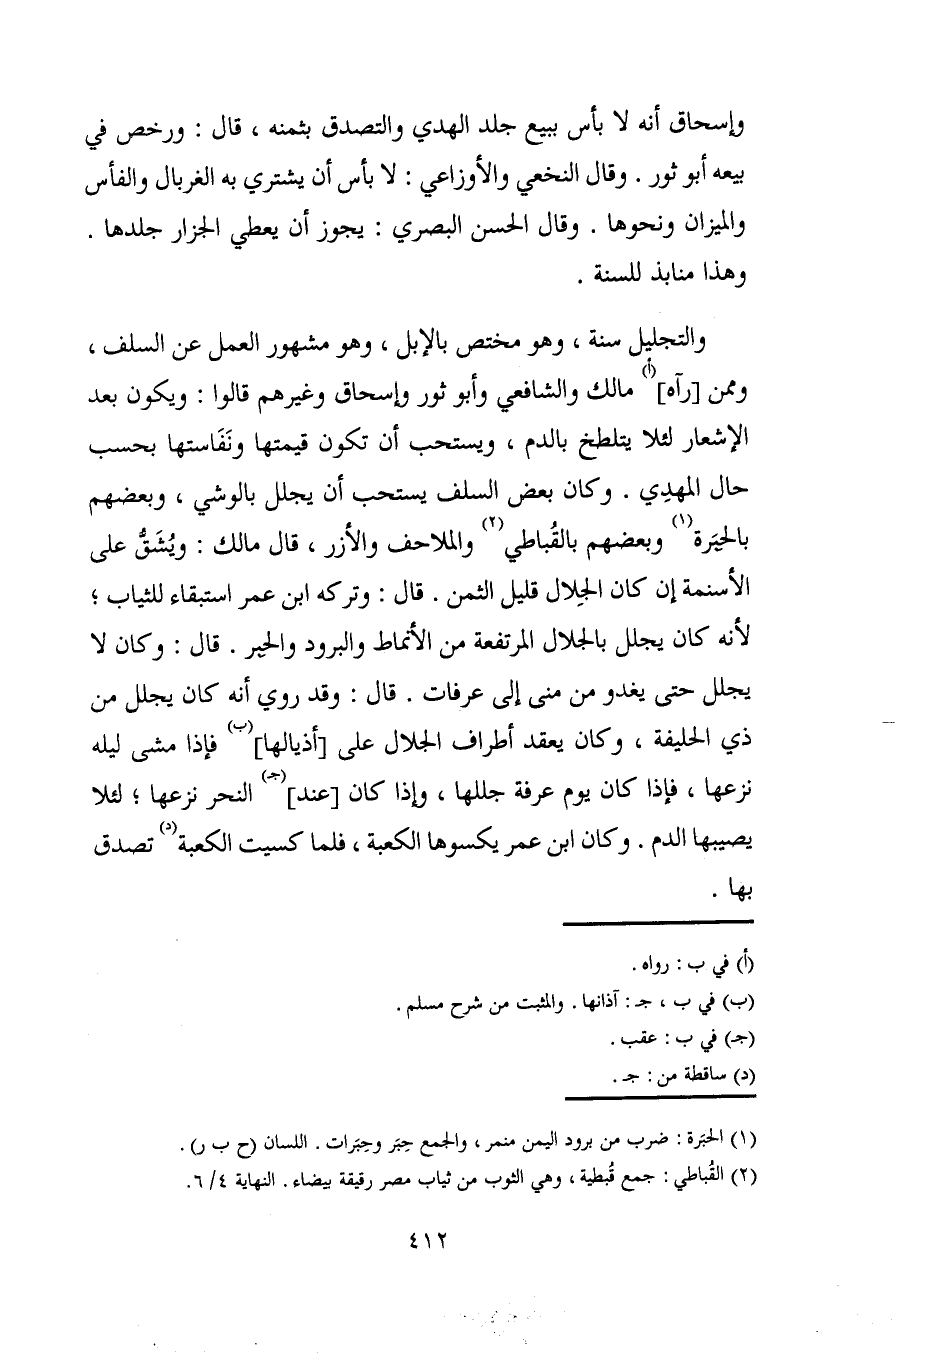 وإسحاق أنه لا بأس ببيع جلد الهدي والتصدق بثمنه ، قال : ورخص في
بيعه أبو ثور . وقال النخعي والأوزاعي : لا بأس أن يشتري به الغربال والفأس
والميزان ونحوها . وقال الحسن البصري : يجوز أن يعطي الجزار جلدها .
وهذا منابذ للسنة .
والتجليل سنة ، وهو مختص بالإبل ، وهو مشهور العمل عن السلف ،
وممن [رآه](أ) مالك والشافعي وأبو ثور وإسحاق وغيرهم قالوا : ويكون بعد
الإشعار لئلا يتلطخ بالدم ، ويستحب أن تكون قيمتها ونَفَاستها بحسب
حال المهدِي . وكان بعض السلف يستحب أن يجلل بالوشي ، وبعضهم
بالحِبَرة(١) وبعضهم بالقُباطي(٢) والملاحف والأزر ، قال مالك : ويُشَقُّ على
الأسنمة إن كان الجِلال قليل الثمن . قال : وتركه ابن عمر استبقاء للثياب ؛
لأنه كان يجلل بالجلال المرتفعة من الأنماط والبرود والحبر . قال : وكان لا
يجلل حتى يغدو من منى إلى عرفات . قال : وقد روي أنه كان يجلل من
ذي الحليفة ، وكان يعقد أطراف الجلال على [أذيالها](ب) فإذا مشى ليله
نزعها ، فإذا كان يوم عرفة جللها ، وإذا كان [عند](جـ) النحر نزعها ؛ لئلا
يصيبها الدم . وكان ابن عمر يكسوها الكعبة ، فلما كسيت الكعبة(د) تصدق
بها .
(أ) في ب : رواه .
(ب) في ب ، جـ : آذانها . والمثبت من شرح مسلم .
(جـ) في ب : عقب .
(د) ساقطة من : جـ .
(١) الحبَرة : ضرب من برود اليمن منمر ، والجمع حِبَر وحِبَرات . اللسان (ح ب ر) .
(٢) القُباطي : جمع قُبطية ، وهي الثوب من ثياب مصر رقيقة بيضاء . النهاية ٤/ ٦.
٤١٢